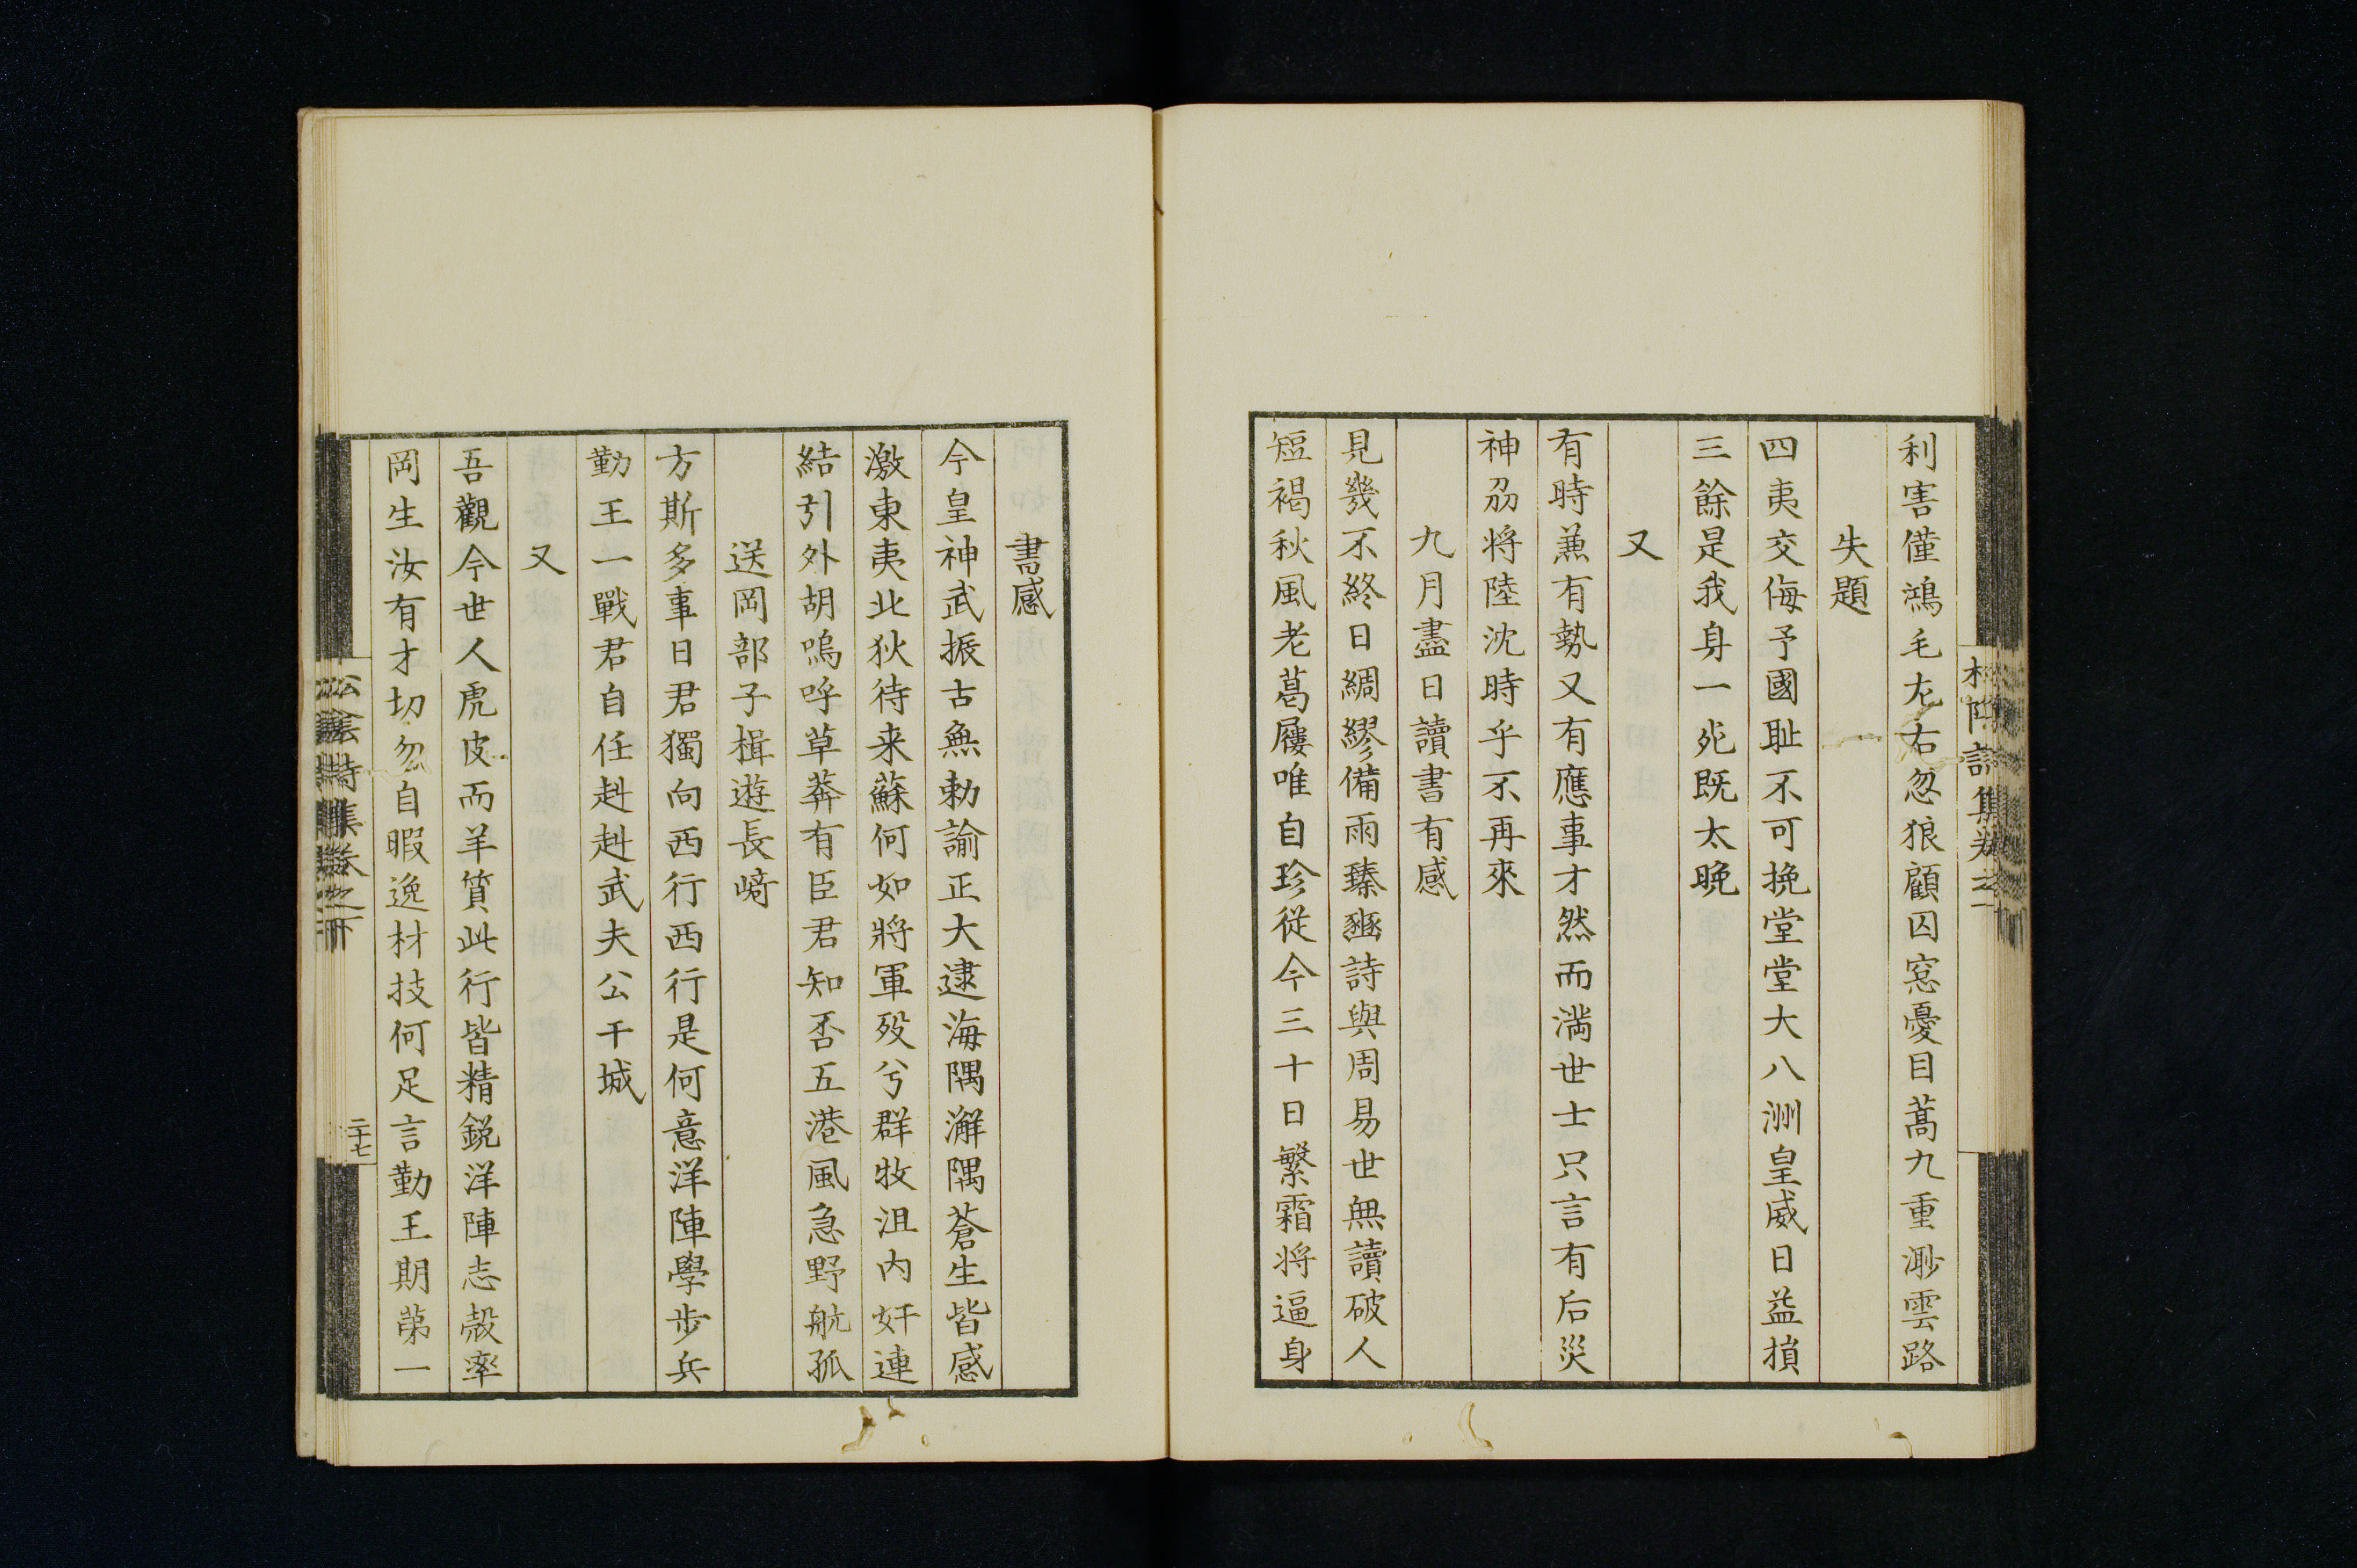 利害僅鴻毛左右忽狼顧囚窓憂目蒿九重渺雲路
失題
四夷交侮予國耻不可挽堂堂大八洲皇威日益損
三餘是我身一死既太晚
又
有時兼有勢又有應事才然而滿世士只言有后災
神刕将陸沈時乎不再來
九月盡日讀書有感
見幾不終日綢繆備雨臻豳詩與周易世無讀破人
短褐秋風老葛屨唯自珍從今三十日繁霜将逼身
書感
今皇神武振古無勅諭正大逮海隅澥隅蒼生皆感
激東夷北狄待来蘇何如將軍歿兮群牧沮内奸連
結引外胡嗚呼草莽有臣君知否五港風急野航孤
送岡部子楫遊長﨑
方斯多事日君獨向西行西行是何意洋陣學步兵
勤王一戰君自任赳赳武夫公干城
又
吾觀今世人虎皮而羊質此行皆精銳洋陣志彀率
岡生汝有才切勿自暇逸材技何足言勤王期第一
松陰詩集卷之下
二十七